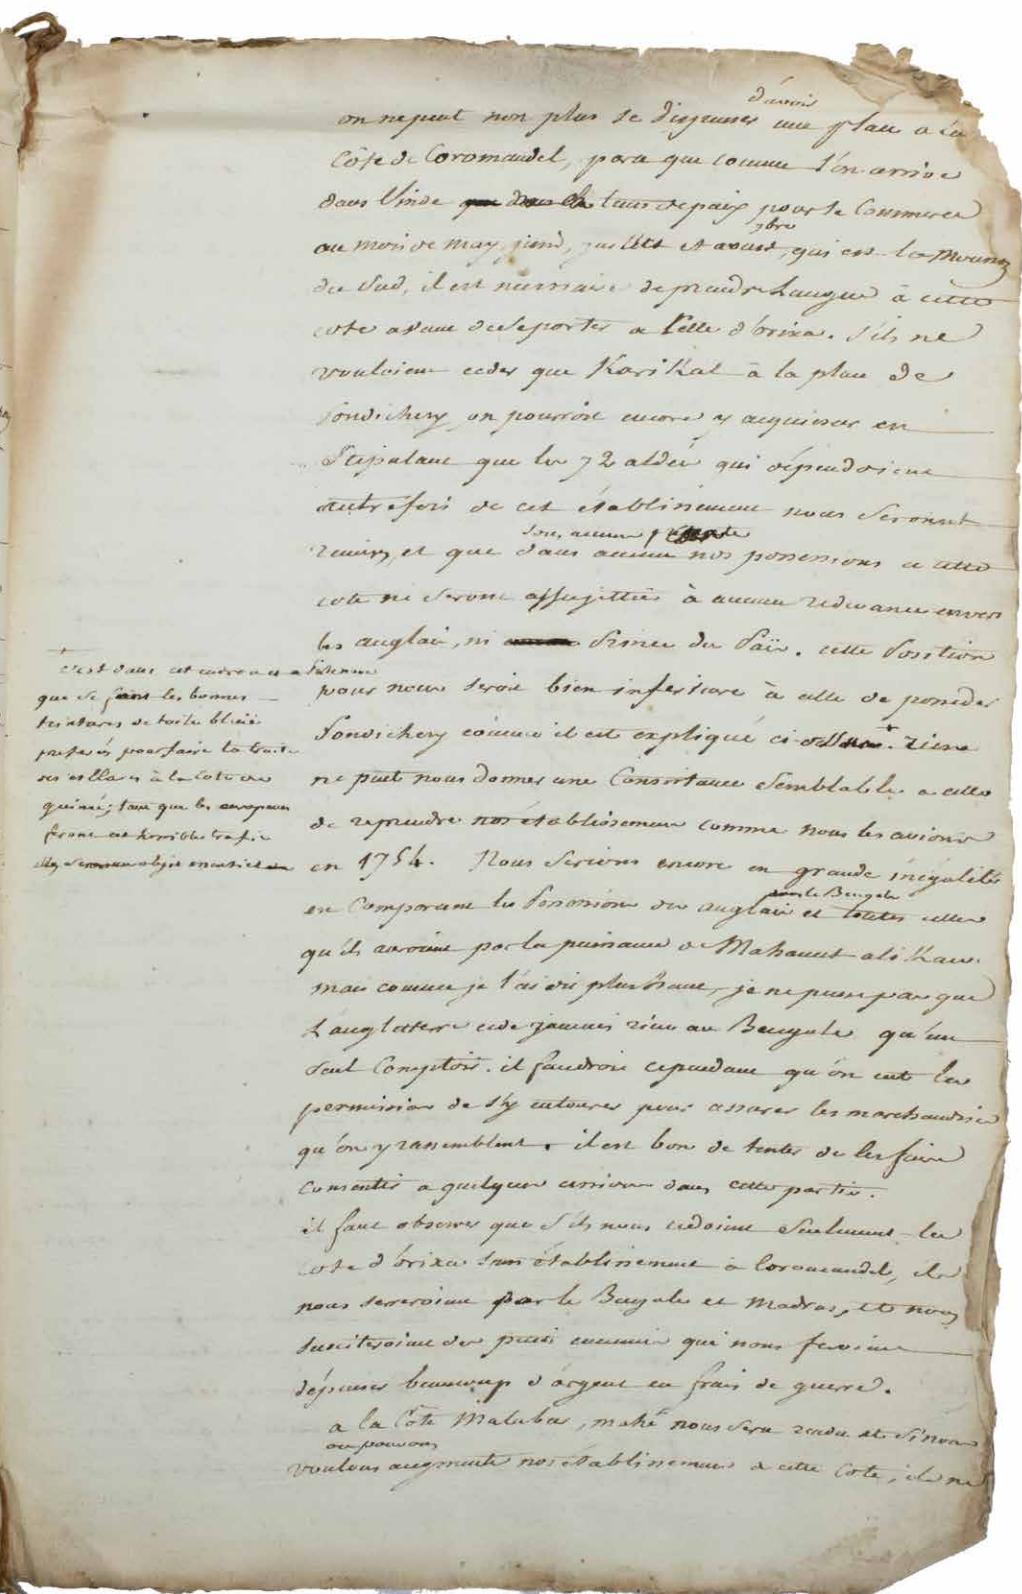 d'avoir
on ne peut non plus se dispenser une place a la
Côte de Coromandel, parce que comme l'on arrive
dans l'inde tems de paix pour le Commerce
au mois de may, juin, juillet et aoust, 7bre qui est la
du Sud, il est necessaire de prendre Langue à cette
cote avant de se porter a celle d'orixa. s'ils ne
vouloient ceder que Karikal à la place de
Pondichery on pourroit encore y acquiescer en
Stipulant que les 72 aldées qui dépendoient
autrefois de cet établissement nous seront
sous aucun prétexte
remises, et que dans aucun nos possessions a cette
cote ne seront assujetties à aucune redevance envers
les anglais, ni Prince du Païs. cette Position
pour nous seroit bien inferieure à celle de posseder
Pondichery comme il est expliqué ci-dessus +. rien
ne peut nous donner une Consistance Semblable a celle
de reprendre nos établissemens comme nous les avions
en 1754. Nous serions encore en grande inégalité
dans le Bengale
en Comparant les Possessions des anglais et toutes celles
qu'ils auroient par la puissance de Mahamet ali Kan.
mais comme je l'ai dit plus haut, je ne pense pas que
L'angleterre cede jamais rien au Bengale qu'un
seul Comptoir. il faudroit cependant qu'on eut la
permission de s'y entourer pour assurer les marchandises
qu'on y rassemblent. il est bon de tenter de les faire
consentir a quelques cessions dans cette partie.
il faut observer que s'ils nous cedoient seulement la
cote d'orixa sans établissement à Coromandel, ils
nous serreroient par le Bengale et Madras, et nous
susciteroient des petits ennemis qui nous feroient
dépenser beaucoup d'argent en frais de guerre.
a la Côte Malabar, mahé nous sera rendu et si nous
ou pouvons
voulons augmenter nos établissemens a cette Cote, ils ne
+
c'est dans cet endroit
que se font les bonnes
teintures de toile bleüe
preferés pour faire la traite
des esclaves à la Cote de
guinée; tant que les européens
feront cet horrible trafic